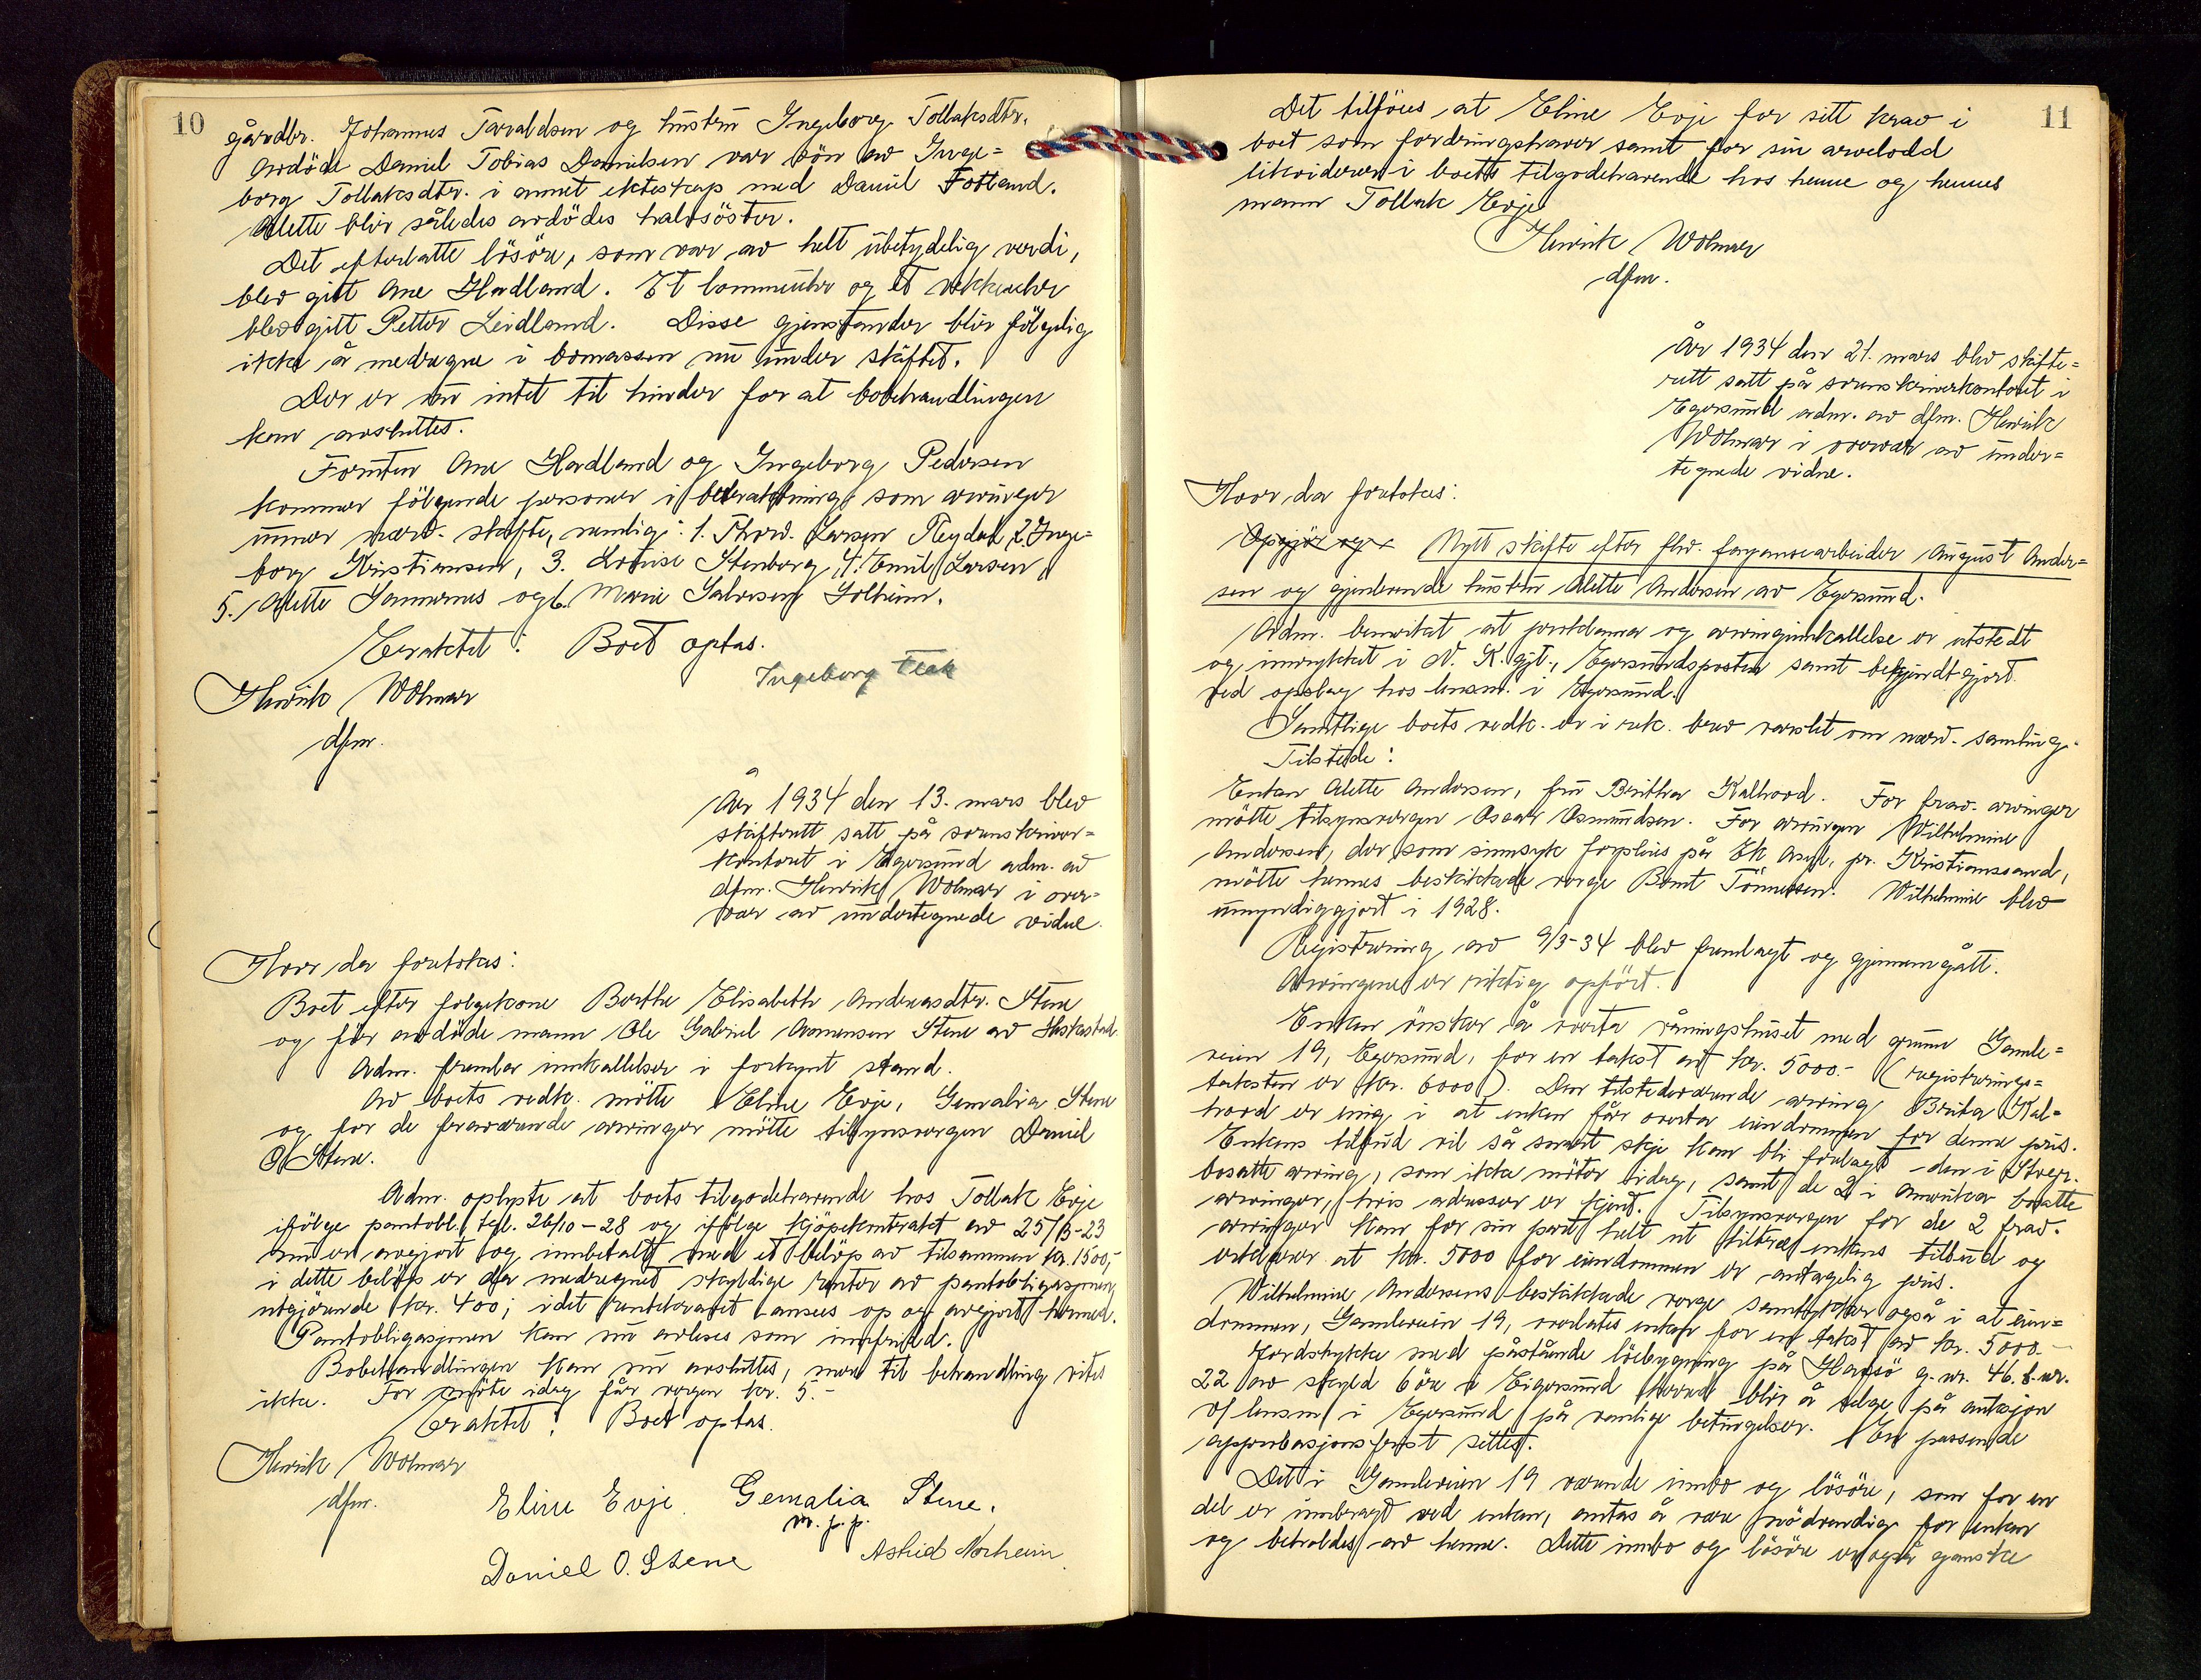 10
gårdbr. Johannes Tarvaldsen og hustru Ingeborg Tollaksdtr.
Avdöde Daniel Tobias Danielsen var sön av Inge=
borg Tollaksdtr. i annet ekteskap med Daniel Fotland.
Alette blir således avdödes halvsöster.
Det efterlatte lösöre, som var av helt ubetydelig verdi,
blev gitt Ane Hadland. Et lommeuhr og et vekkeuhr
blev gitt Petter Leidland. Disse gjenstander blir fölgelig
ikke å medregne i bomassen nu under skiftet.
Der er nu intet til hinder for at bobehandlingen
kan avsluttes.
Foruten Ane Hadland og Ingeborg Pedersen
kommer fölgende personer i betraktning som arvinger
under nærv. skifte, nemlig: 1. Thorv. Larsen Regdal, 2. Inge=
borg Kristiansen, 3. Lovise Stenberg, 4. Emil Larsen,
5. Alette Sannernes og 6. Marie Salvesen Solheim.
Eraktet: Boet optas.
Henrik Wolmar
dfm.
Ingeborg Leak
År 1934 den 13. mars blev
skifterett satt på sorenskriver=
kontoret i Egersund adm. av
dfm. Henrik Wolmar i over=
vær av undertegnede vidne.
Hvor da foretokes:
Boet efter folgekone Berthe Elisabeth Andreasdtr. Stene
og för avdöde mann Ole Gabriel Aamensen Stene av Heskestad.
Adm. fremla innkallelser i forkynt stand.
Av boets vedk. mötte Eline Evje, Gemalia Stene
og for de fraværende arvinger mötte tilsynsvergen Daniel
O. Stene.
Adm. oplyste at boets tilgodehavende hos Tollak Evje
ifölge pantobl. tgl. 26/10-28 og ifölge kjöpekontrakt av 25/5-23
nu er avgjort og innbetalt med et belöp av tilsammen kr. 1500,-
i dette belöp er da medregnet skyldige renter av pantobligasjonen,
utgjörende kr. 400; idet rentekravet ansees op og avgjort hermed.
Pantobligasjonen kan nu avleses som innfridd.
Bobehandlingen kan nu avsluttes, mere til behandling vites
ikke. For möte idag får vergen kr. 5.-
Eraktet: Boet optas.
Henrik Wolmar
dfm.
Eline Evje. Gemalia Stene.
m. p. p.
Daniel O. Stene
Astrid Norheim.
11
Det tilföies, at Eline Evje for sitt krav i
boet som fordringshaver samt for sin arvelodd
likviderer i boets tilgodehavende hos henne og hennes
mann Tollak Evje
Henrik Wolmar
dfm.
År 1934 den 21. mars blev skifte=
rett satt på sorenskriverkontoret i
Egersund adm. av dfm. Henrik
Wolmar i overvær av under=
tegnede vidne.
Hvor da foretokes:
Opgjör og Nytt skifte efter fhv. fayansearbeider August Ander=
sen og gjenlevende hustru Alette Andersen av Egersund.
Adm. bemerket at proklama og arvinginnkallelse er utstedt
og innrykket i N. K. gjt., Egersundsposten samt bekjendtgjort
ved opslag hos lensm. i Egersund.
Samtlige boets vedk. er i rek. brev varslet om nærv. samling.
Tilstede:
Enken Alette Andersen, fru Britha Kalhovd. For frav. arvinger
mötte tilsynsvergen Oscar Asmundsen. For arvingen Wilhelmine
Andersen, der som sinnsyk forpleies på Ek Asyl, pr. Kristianssand,
mötte hennes beskikkede verge Bernt Tönnesen. Wilhelmine blev
umyndiggjort i 1928.
Registrering av 9/3-34 blev fremlagt og gjennemgått.
Arvingene er riktig opfört.
Enken önsker å overta våningshuset med grunn Gamle=
veien 19, Egersund, for en takst av kr. 5000.- (registrerings=
taksten er kr. 6000). Den tilstedeværende arving Brita Kal=
hovd er enig i at enken får overta eiendommen for denne pris.
Enkens tilbud vil så snart skje kan bli forelagt den i Stvgr.
bosatte arving, som ikke möter idag, samt de 2 i Amerika bosatte
arvinger, hvis adresser er kjent. Tilsynsvergen for de 2 frav.
arvinger kan for sin part helt ut tiltre enkens tilbud og
erklærer at kr. 5000 for eiendommen er antagelig pris.
Wilhelmine Andersens beskikkede verge samtykker også i at eien=
dommen, Gamleveien 19, overlates enken for en takst av kr. 5000.-
Jordstykke med påstående löebygning på Hafsö g.nr. 46. b.nr.
22 av skyld 6 öre i Eigersund herred blir å selge på auksjon
v/ lensm. i Egersund på vanlige betingelser. En passende
approbasjonsfrist settes.
Det i Gamleveien 19 værende innbo og lösöre, som for en
del er innbragt ved enken, antas å være nödvendig for enken
og beholdes av henne. Dette innbo og lösöre er også ganske